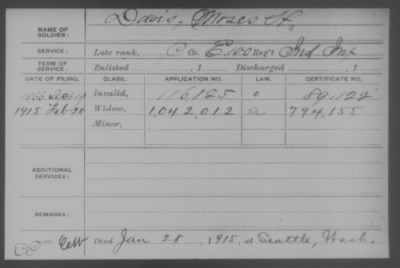 NAME OF SOLDIER: Davis, Moses H.
SERVICE: Late rank, Co. E, 100 Reg't Ind Inf
TERM OF SERVICE: Enlisted , 1 Discharged , 1
DATE OF FILING. CLASS. APPLICATION NO. LAW. CERTIFICATE NO.
1866 Invalid, 116125 89,122
1915 Feb-20 Widow, 1,042,012 a 794,155
Minor,
ADDITIONAL SERVICES:
REMARKS:
C&W Died Jan 28, 1915, at Seattle, Wash.